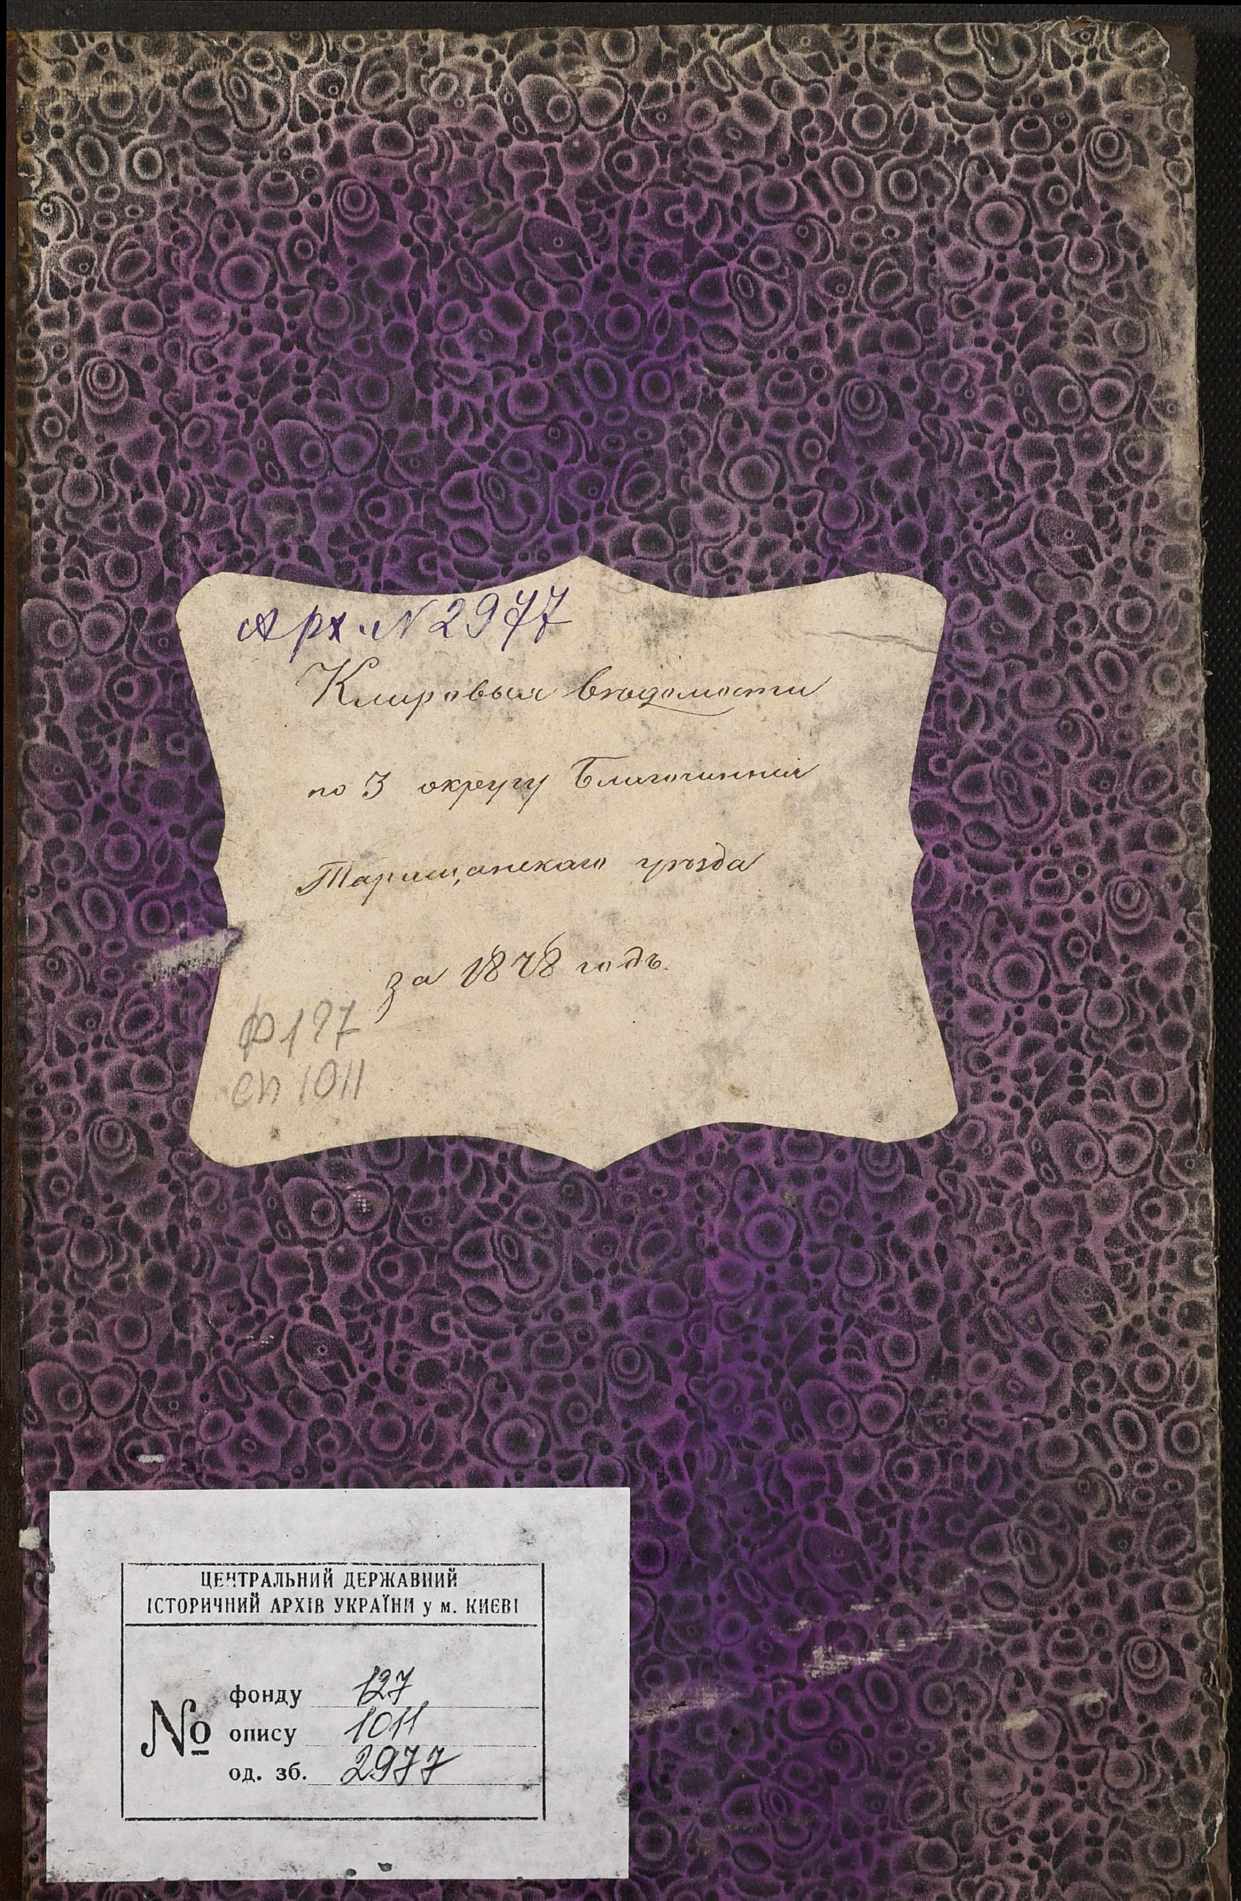 Арх. № 2977
Клировыя вѣдомости
по 3 округу Благочинія
Таращанскаго уѣзда
за 1878 годъ.
Ф 127
оп 1011
ЦЕНТРАЛЬНИЙ ДЕРЖАВНИЙ
ІСТОРИЧНИЙ АРХІВ УКРАЇНИ у м. КИЄВІ
№
фонду 127
опису 1011
од. зб. 2977